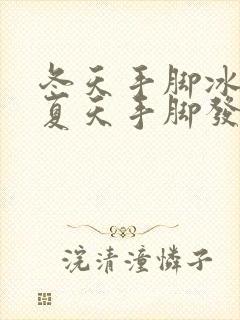 冬天手脚冰
夏天手脚發
浣清潼憐子